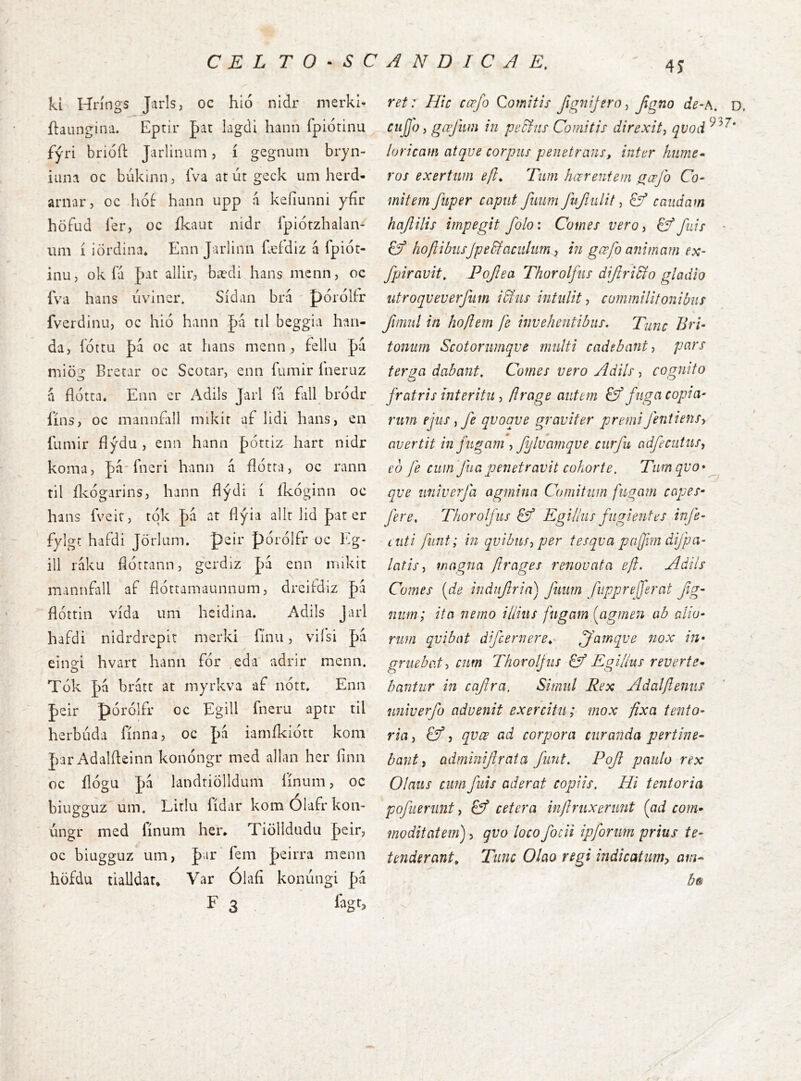 CELTO-SCANDICAE.
45
ki Hríngs Jarls, oc hió nidr merki-
ſtaungina. Eptir þat lagdi hann ſpiótinu
fýri brióſt Jarlinum, í gegnum bryn-
iuna oc búkinn, ſva at út geck um herd-
arnar, oc hóf hann upp á keſiunni yfir
höfud ſer, oc ſkaut nidr ſpiótzhalan-
um í iördina. Enn Jarlinn ſæfdiz á ſpiót-
inu, ok ſá þat allir, bædi hans menn, oc
ſva hans úviner. Sídan brá Þórólfr
ſverdinu, oc hió hann þá til beggia han-
da, ſóttu þá oc at hans menn, fellu þá
miög Bretar oc Scotar, enn ſumir ſneruz
á flótta. Enn er Adils Jarl ſá fall bródr
ſíns, oc mannfall mikit af lidi hans, en
ſumir flýdu, enn hann þóttiz hart nidr
koma, þá ſneri hann á flótta, oc rann
til ſkógarins, hann flýdi í ſkóginn oc
hans ſveit, tók þá at flýia allt lid þat er
fylgt hafdi Jörlum. Þeir Þórólfr oc Eg-
ill ráku flóttann, gerdiz þá enn mikit
mannfall af flóttamaunnum, dreifdiz þá
flóttin vída um heidina. Adils Jarl
hafdi nidrdrepit merki ſínu, viſsi þá
eingi hvart hann fór eda adrir menn.
Tók þá brátt at myrkva af nótt. Enn
þeir Þórólfr oc Egill ſneru aptr til
herbúda ſinna, oc þá iamſkiótt kom
þar Adalſteinn konóngr med allan her ſinn
oc ſlógu þá landtiölldum ſínum, oc
biugguz um. Litlu ſídar kom Ólafr kon-
úngr med ſínum her. Tiölldudu þeir,
oc biugguz um, þar ſem þeirra menn
höfdu tialldat. Var Ólafi konúngi þá
F 3 ſagt,
ret: Hic cæſo Comitis ſignifero, ſigno de-
cuſſo, gæſum in pectus Comitis direxit, qvod
loricam atqve corpus penetrans, inter hume-
ros exertum eſt. Tum hærentem gæſo Co-
mitem ſuper caput ſuum ſuſtulit, & caudam
haſtilis impegit ſolo: Comes vero, & ſuis
& hoſtibus ſpectaculum, in gæſo animam ex-
ſpiravit. Poſtea Thorolfus diſtricto gladio
utroqveverſum ictus intulit, commilitonibus
ſimul in hoſtem ſe invehentibus. Tunc Bri-
tonum Scotorumqve multi cadebant, pars
terga dabant. Comes vero Adils, cognito
fratris interitu, ſtrage autem & fuga copia-
rum ejus, ſe qvoqve graviter premi ſentiens,
avertit in fugam, ſylvamqve curſu adſecutus,
eò ſe cum ſua penetravit cohorte. Tum qvo-
qve univerſa agmina Comitum fugam capes-
ſere. Thorolfus & Egillus fugientes inſe-
cuti ſunt; in qvibus, per tesqva paſſim diſpa-
latis, magna ſtrages renovata eſt. Adils
Comes (de induſtria) ſuum ſuppreſſerat ſig-
num; ita nemo illius fugam (agmen ab alio-
rum qvibat diſcernere. Jamqve nox in-
gruebat, cum Thorolfus & Egillus reverte-
bantur in caſtra. Simul Rex Adalſtenus
univerſo advenit exercitu; mox fixa tento-
ria, &, qvæ ad corpora curanda pertine-
bant, adminiſtrata ſunt. Poſt paulo rex
Olaus cum ſuis aderat copiis. Hi tentoria
poſuerunt, & cetera inſtruxerunt (ad com-
moditatem), qvo loco ſocii ipſorum prius te-
tenderant. Tunc Olao regi indicatum, am-
bo
A. D.
937.